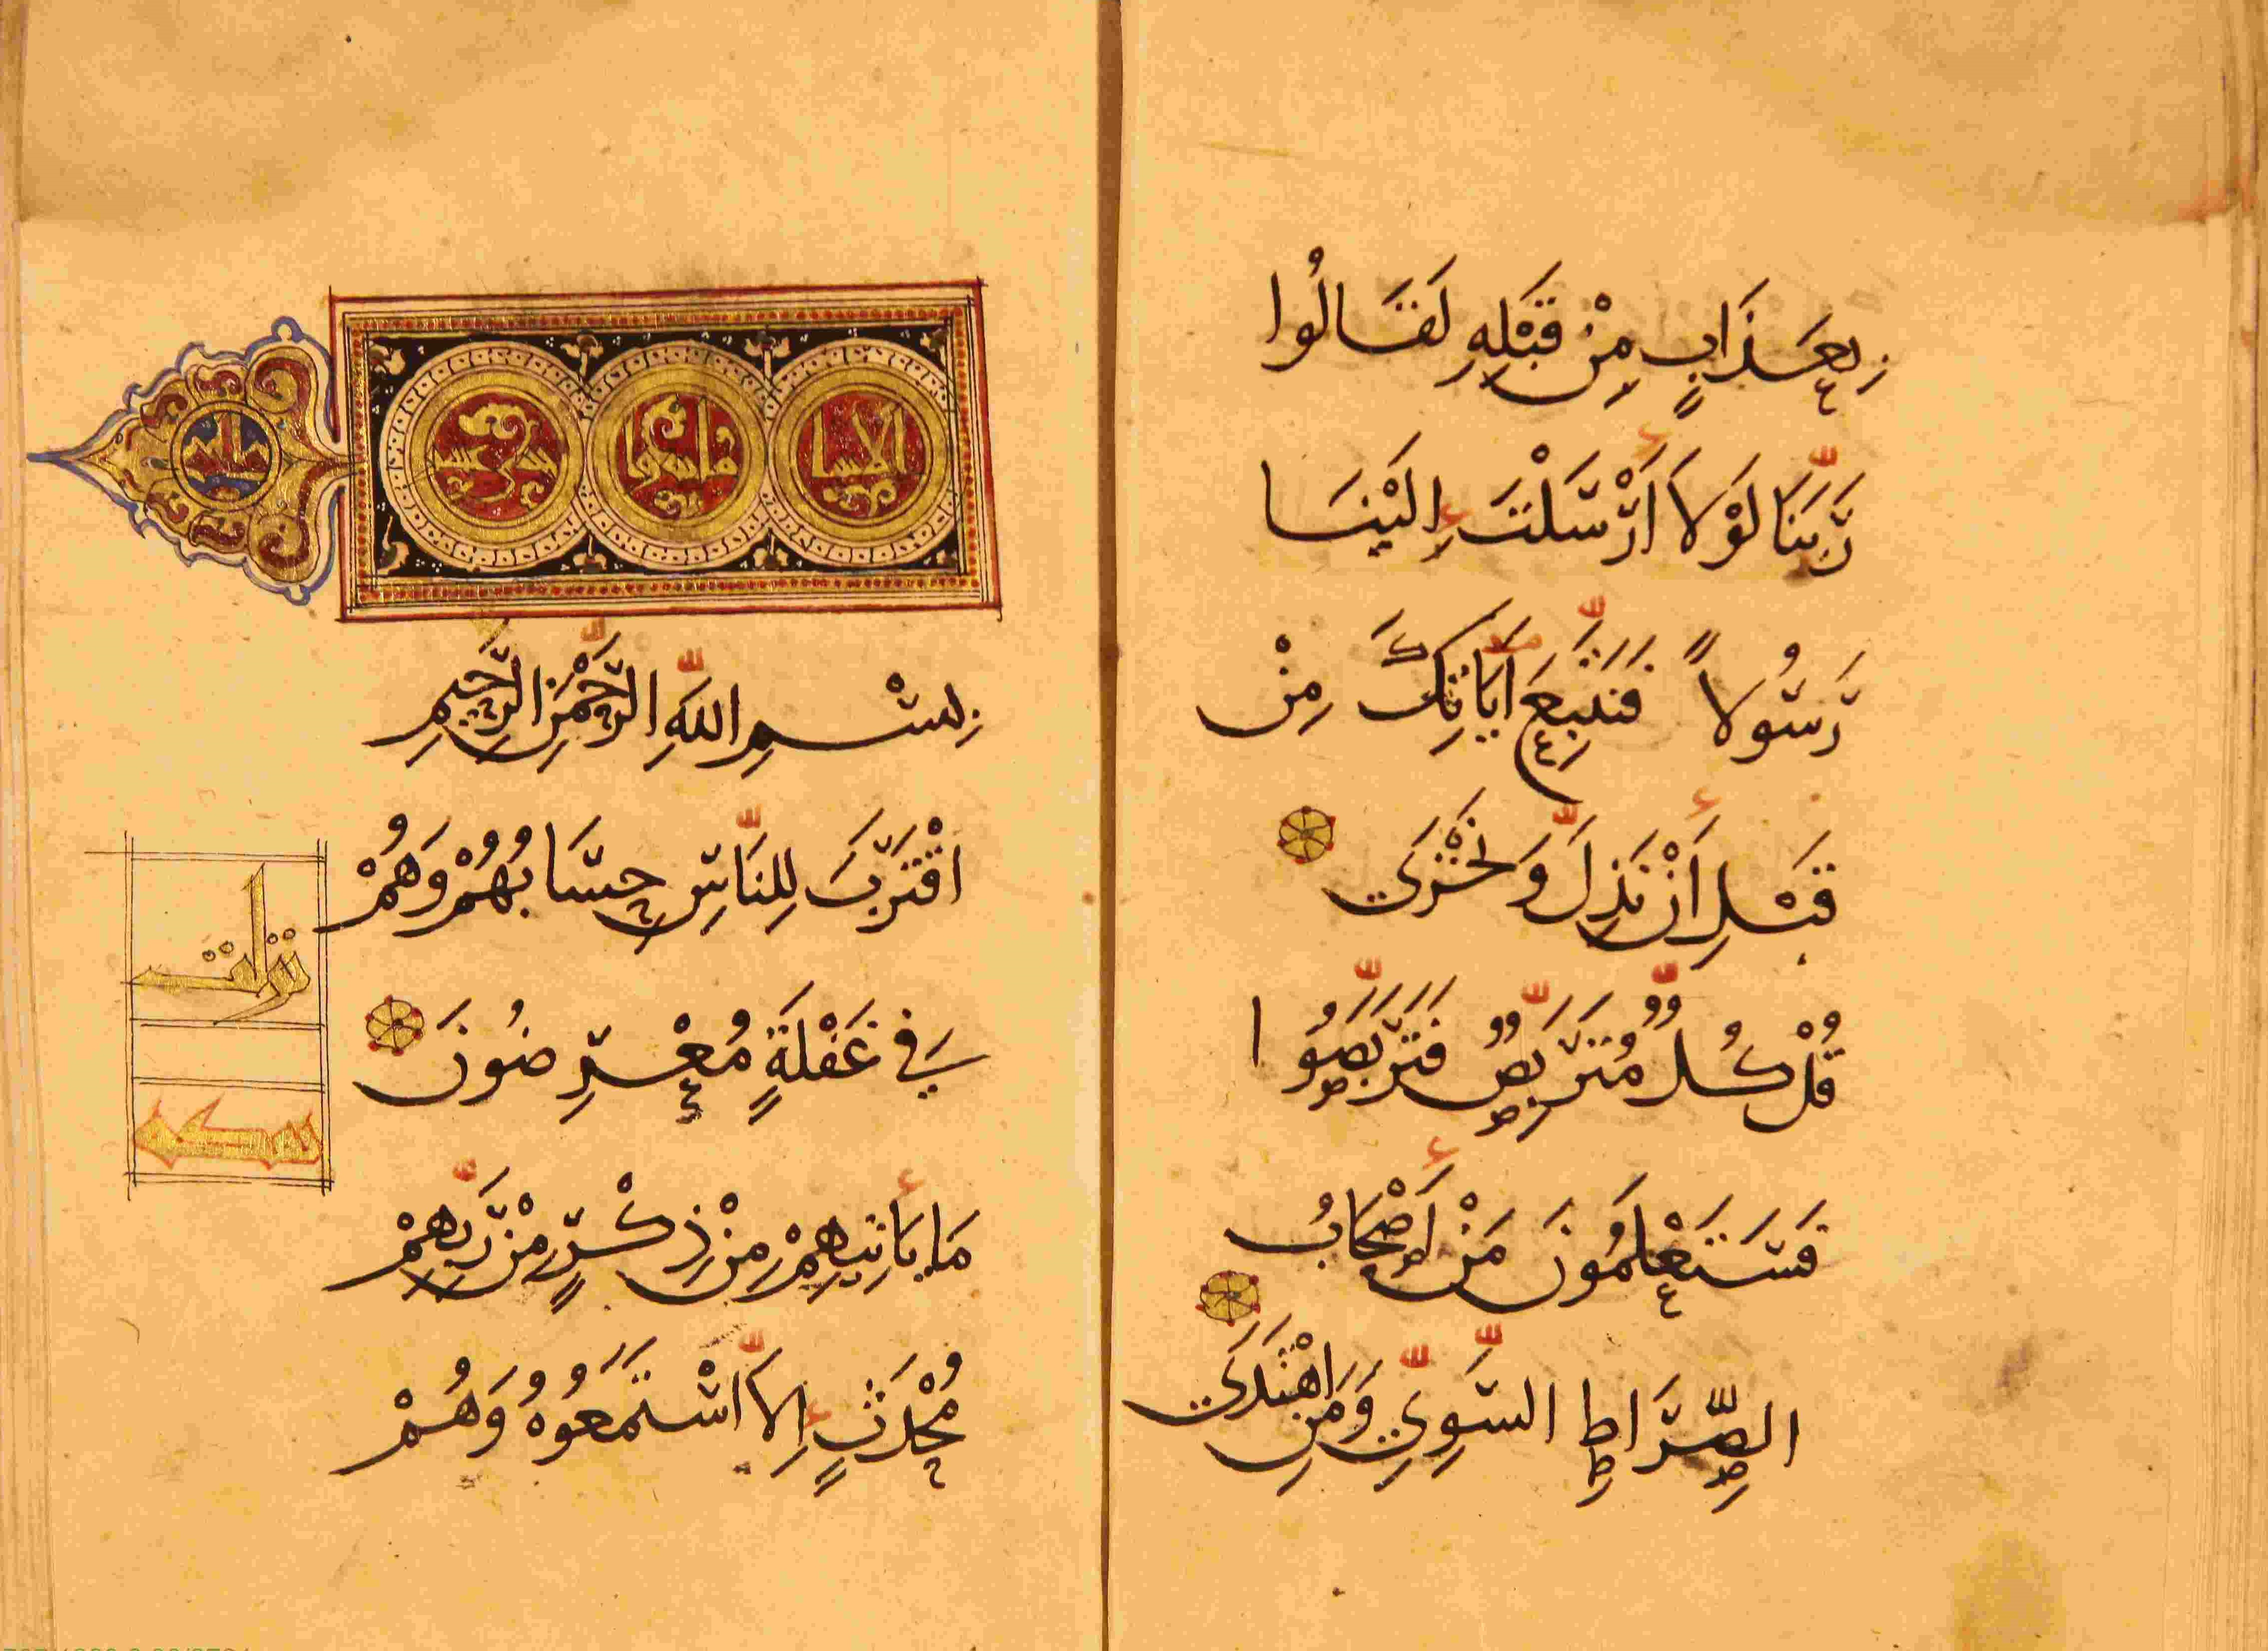 بِعَذَابٍ مِنْ قَبْلِهِ لَقَالُوا
رَبَّنَا لَوْلَا أَرْسَلْتَ إِلَيْنَا
رَسُولًا فَنَتَّبِعَ آيَاتِكَ مِنْ
قَبْلِ أَنْ نَذِلَّ وَنَخْزَى
قُلْ كُلٌّ مُتَرَبِّصٌ فَتَرَبَّصُوا
فَسَتَعْلَمُونَ مَنْ أَصْحَابُ
الصِّرَاطِ السَّوِيِّ وَمَنِ اهْتَدَى
الانبيا
بِسْمِ اللَّهِ الرَّحْمَنِ الرَّحِيمِ
اقْتَرَبَ لِلنَّاسِ حِسَابُهُمْ وَهُمْ
فِي غَفْلَةٍ مُعْرِضُونَ
نزلت
بمكة
مَا يَأْتِيهِمْ مِنْ ذِكْرٍ مِنْ رَبِّهِمْ
مُحْدَثٍ إِلَّا اسْتَمَعُوهُ وَهُمْ